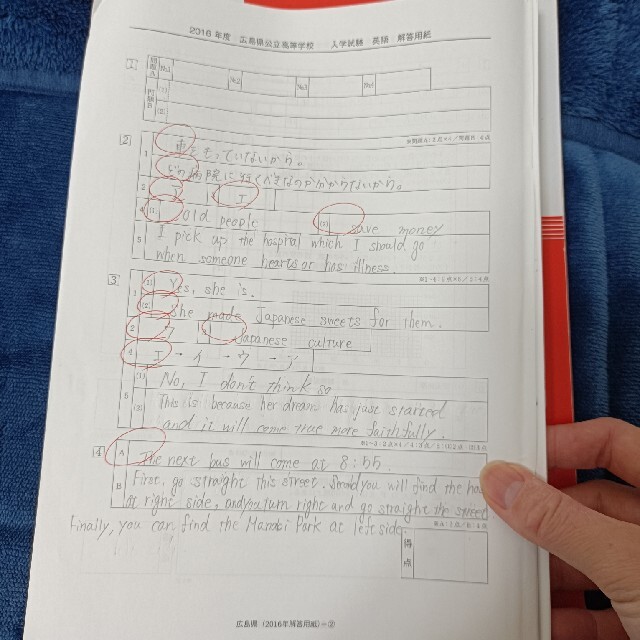 2016年度 広島県公立高等学校 入学試験 英語 解答用紙
[1]
No.1 No.2 No.3 No.4
[2]
1 車をもっていないから。
どの病院に行くべきなのかわからないから。
2 エ
old people save money
5 I pick up the hospital which I should go
when someone hearts or has illness.
[3]
1 (1) Yes, she is.
(2) She made Japanese sweets for them.
2 Japanese culture
4 エ → イ → ウ → ア
5 (1) No, I don't think so
(2) This is because her dream has just started
and it will come true more faithfully.
[4]
A The next bus will come at 8:55.
B First, go straight this street. Second you will find the
at right side, and turn right and go straight the street
Finally, you can find the Park at left side.
得点
広島県（2016年解答用紙）-②